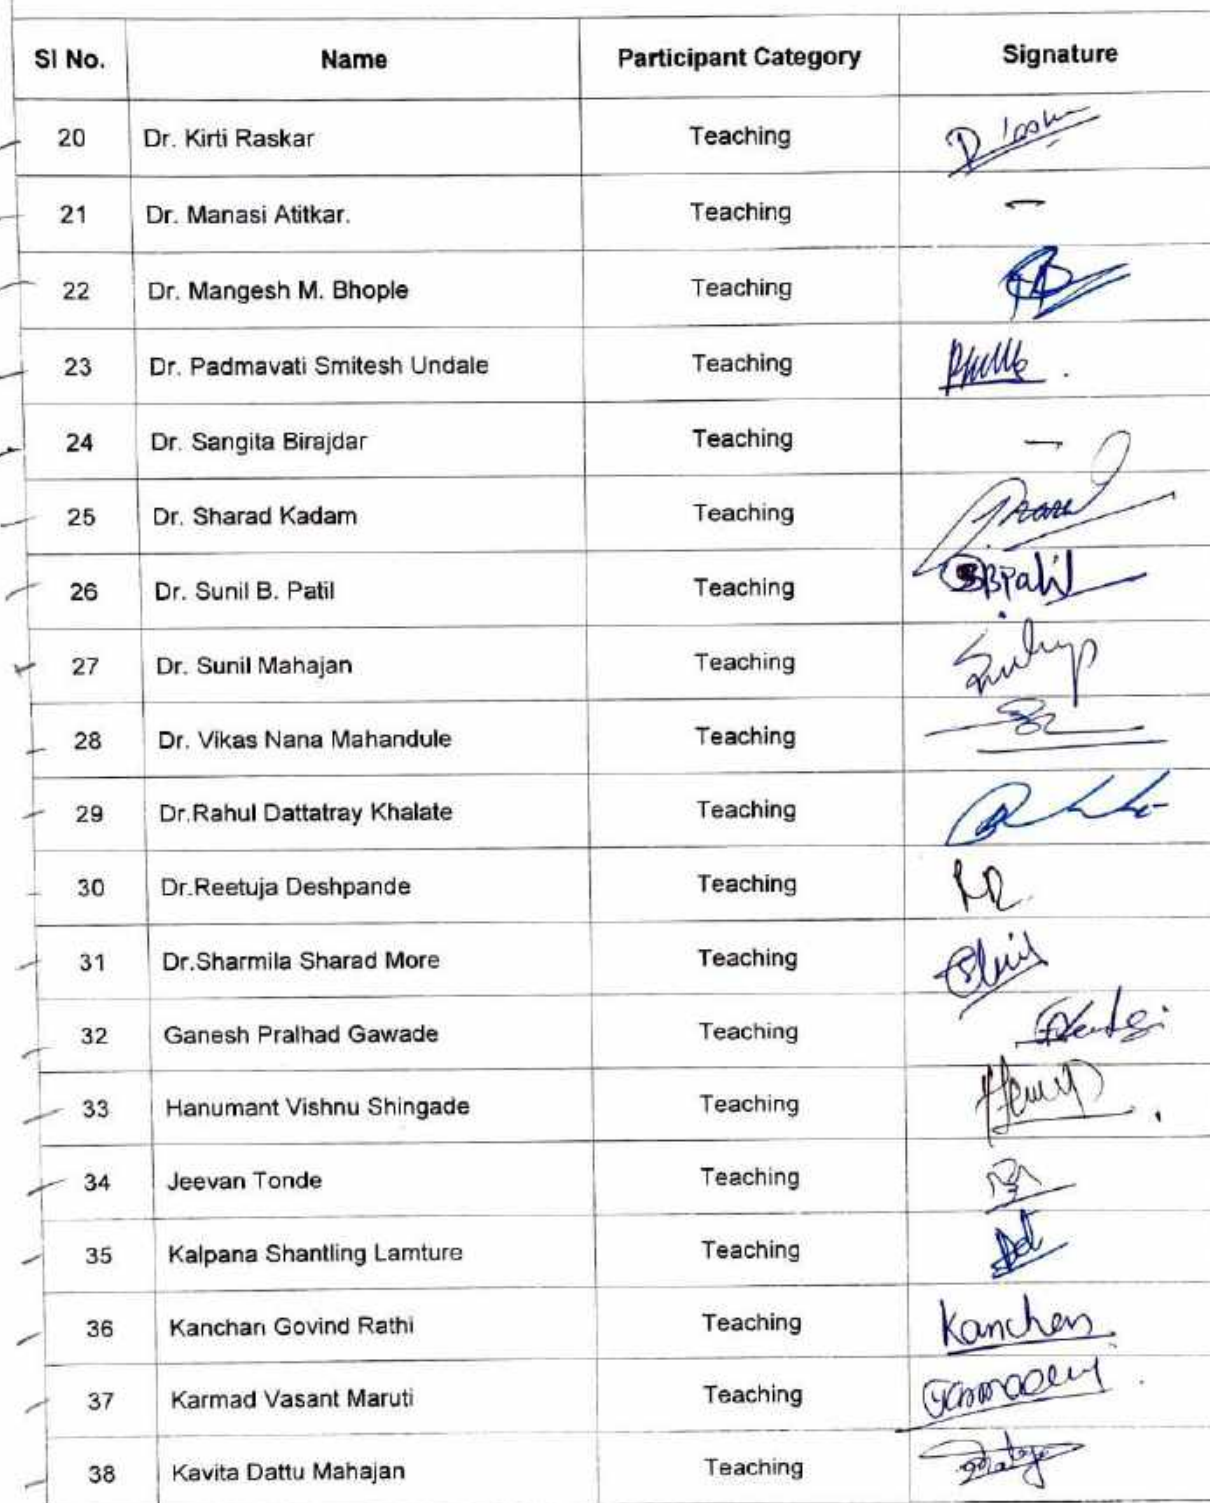 SI No. Name Participant Category Signature
20 Dr. Kirti Raskar Teaching
21 Dr. Manasi Atitkar. Teaching –
22 Dr. Mangesh M. Bhople Teaching
23 Dr. Padmavati Smitesh Undale Teaching
24 Dr. Sangita Birajdar Teaching –
25 Dr. Sharad Kadam Teaching
26 Dr. Sunil B. Patil Teaching SBPatil
27 Dr. Sunil Mahajan Teaching
28 Dr. Vikas Nana Mahandule Teaching
29 Dr.Rahul Dattatray Khalate Teaching
30 Dr.Reetuja Deshpande Teaching
31 Dr.Sharmila Sharad More Teaching
32 Ganesh Pralhad Gawade Teaching
33 Hanumant Vishnu Shingade Teaching
34 Jeevan Tonde Teaching
35 Kalpana Shantling Lamture Teaching
36 Kanchan Govind Rathi Teaching Kanchen
37 Karmad Vasant Maruti Teaching
38 Kavita Dattu Mahajan Teaching